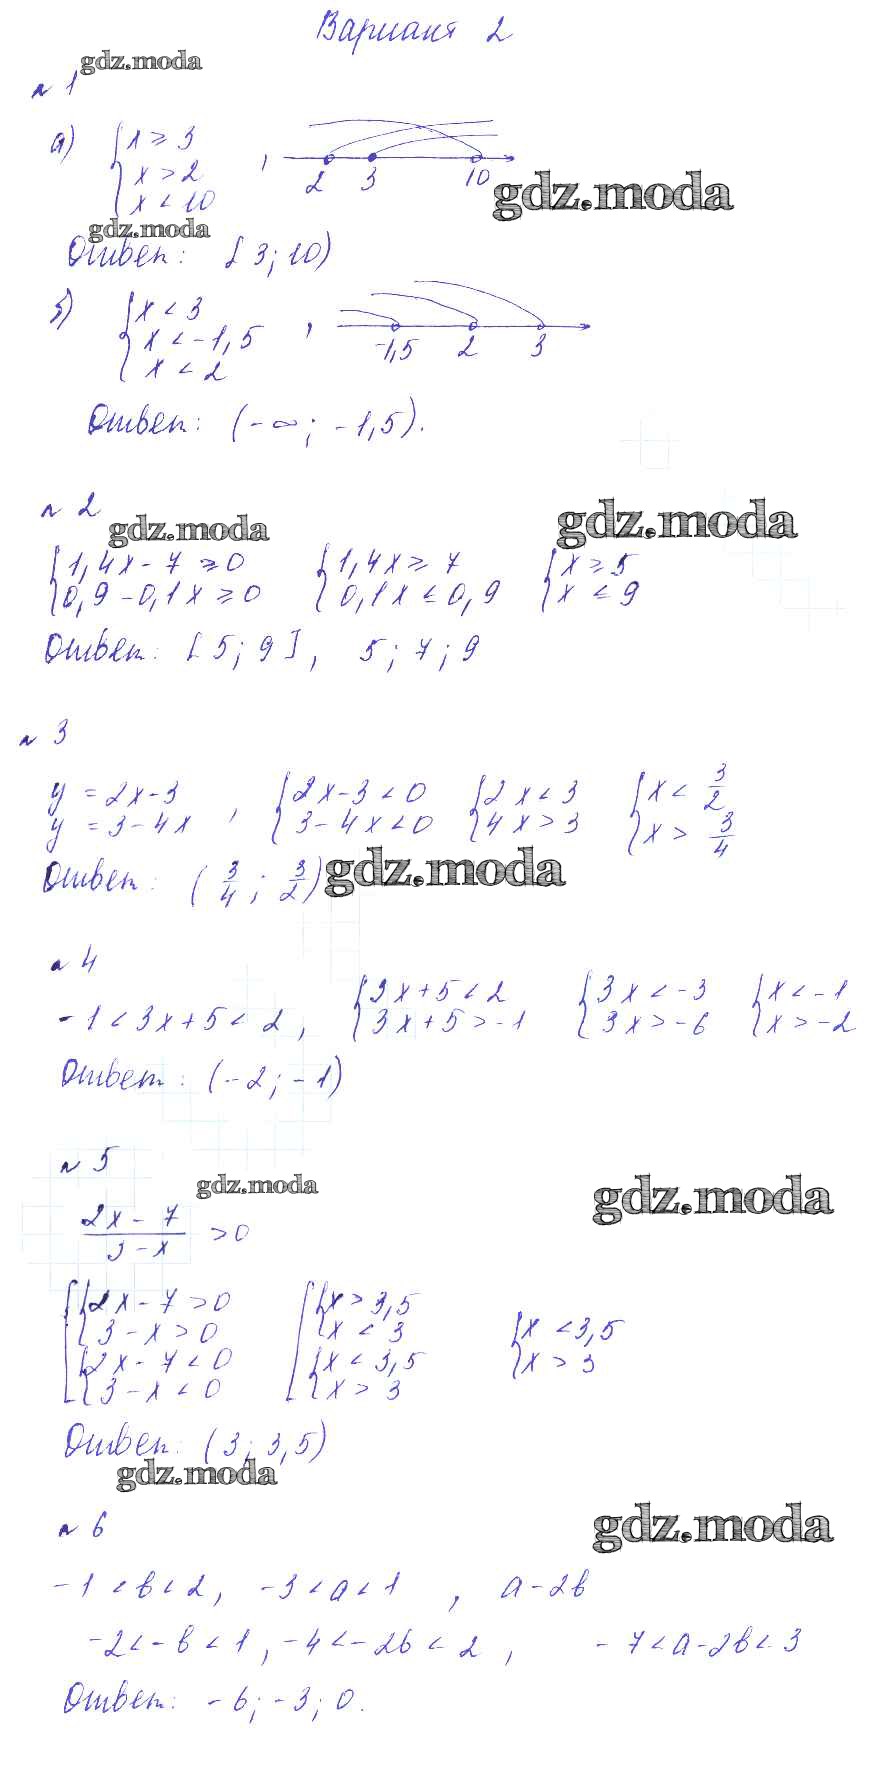 Вариант 2
gdz.moda
№ 1
а) { x ≥ 3
x > 2
x < 10 ,
2 3 10
gdz.moda
gdz.moda
Ответ: [3; 10)
б) { x < 3
x < -1,5
x < 2 ,
-1,5 2 3
Ответ: (-∞; -1,5).
№ 2
gdz.moda
gdz.moda
{ 1,4x - 7 ≥ 0 { 1,4x ≥ 7 { x ≥ 5
0,9 - 0,1x ≥ 0 0,1x ≤ 0,9 x ≤ 9
Ответ: [5; 9], 5; 7; 9
№ 3
y = 2x-3 { 2x-3 < 0 { 2x < 3 { x < 3/2
y = 3-4x , 3-4x < 0 4x > 3 x > 3/4
Ответ: (3/4; 3/2)
gdz.moda
№ 4
-1 < 3x+5 < 2, { 3x+5 < 2 { 3x < -3 { x < -1
3x+5 > -1 3x > -6 x > -2
Ответ: (-2; -1)
№ 5
gdz.moda
gdz.moda
2x-7/3-x > 0
[ { 2x-7 > 0 [ { x > 3,5
3-x > 0 x < 3 { x < 3,5
{ 2x-7 < 0 { x < 3,5 x > 3
3-x < 0 x > 3
Ответ: (3; 3,5)
gdz.moda
№ 6
gdz.moda
-1 < b < 2, -3 < a < 1 , a-2b
-2 < -b < 1, -4 < -2b < 2 , -7 < a-2b < 3
Ответ: -6; -3; 0.